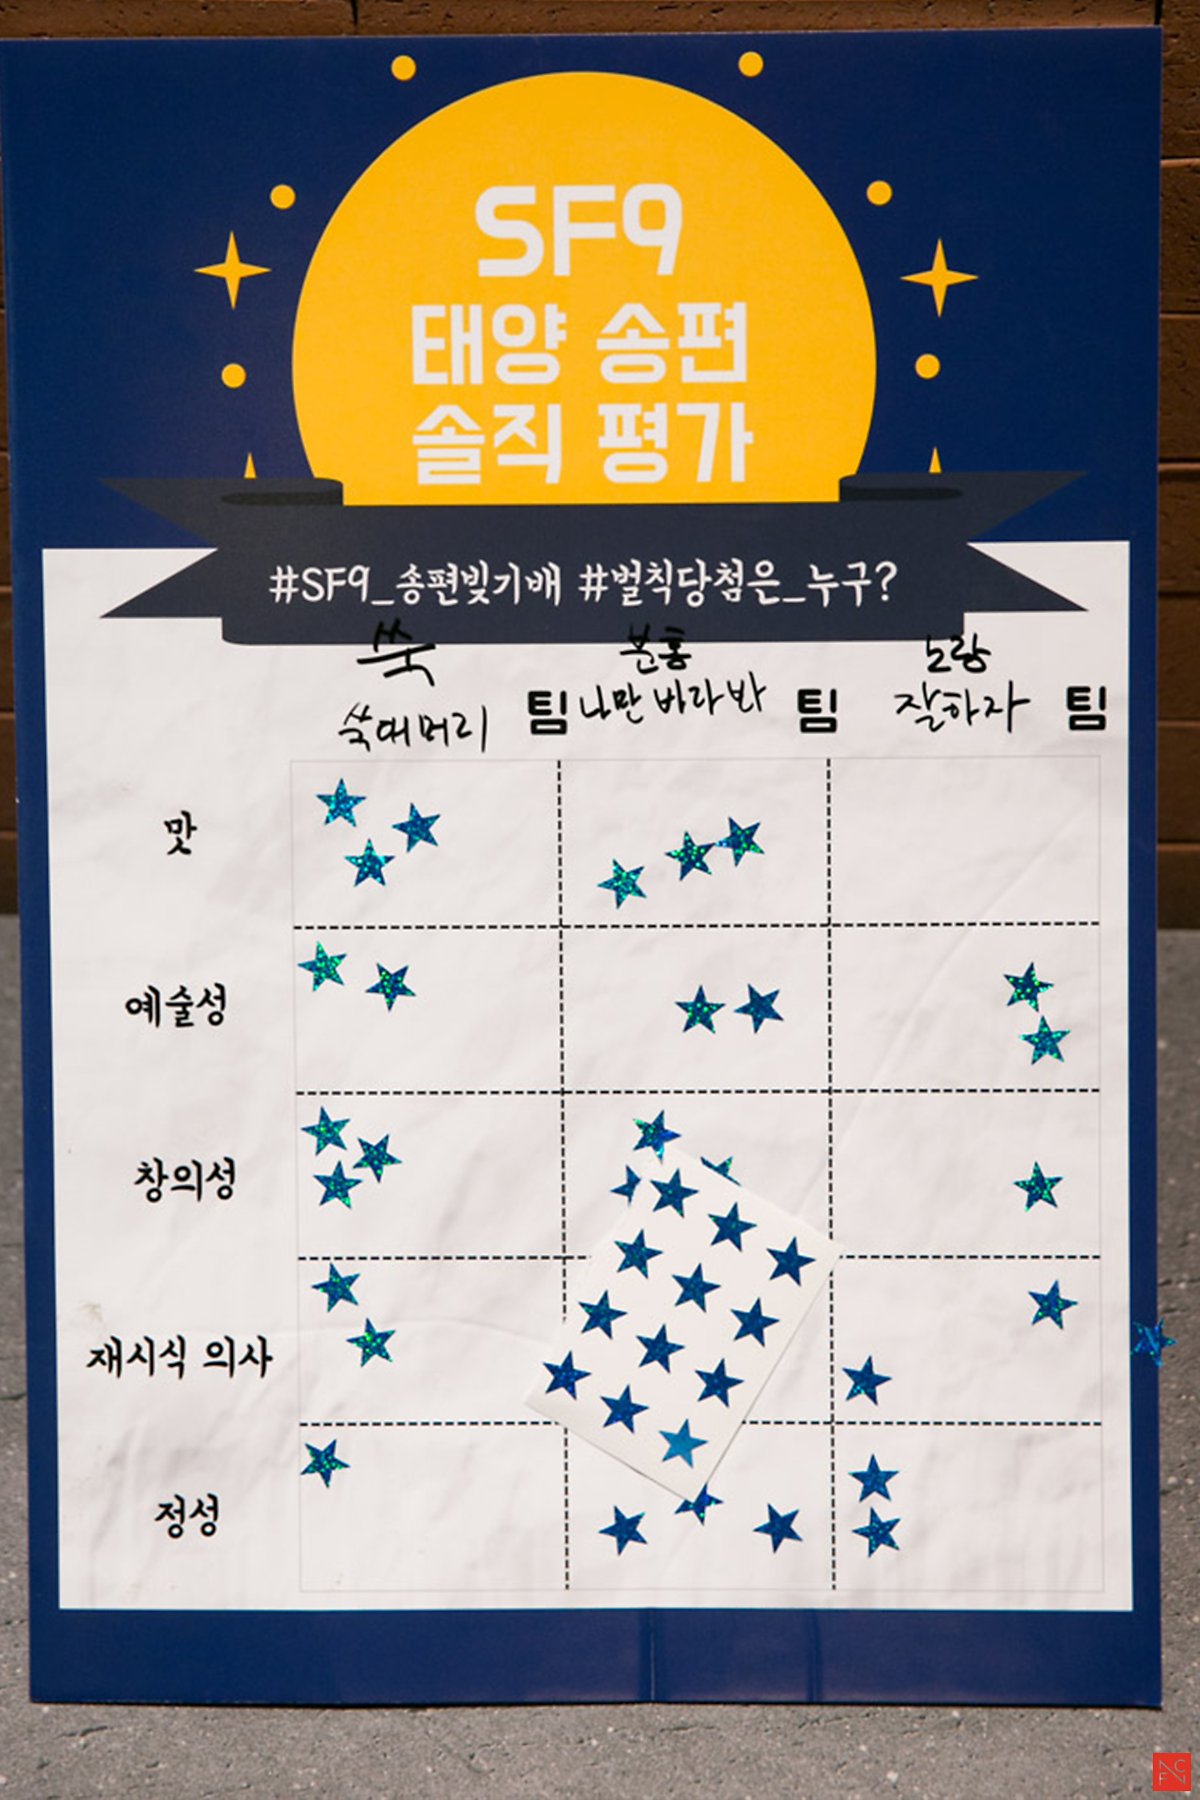 SF9
태양 송편
솔직 평가
#SF9_송편빚기배 #벌칙당첨은_누구?
쑥 분홍 노랑
쑥대머리 팀 나만 바라봐 팀 잘하자 팀
맛
예술성
창의성
재시식 의사
정성
FNC